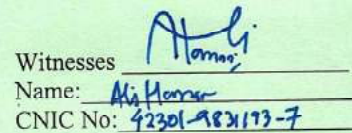 Witnesses
Name: Ali
CNIC No: 42301-9831193-7